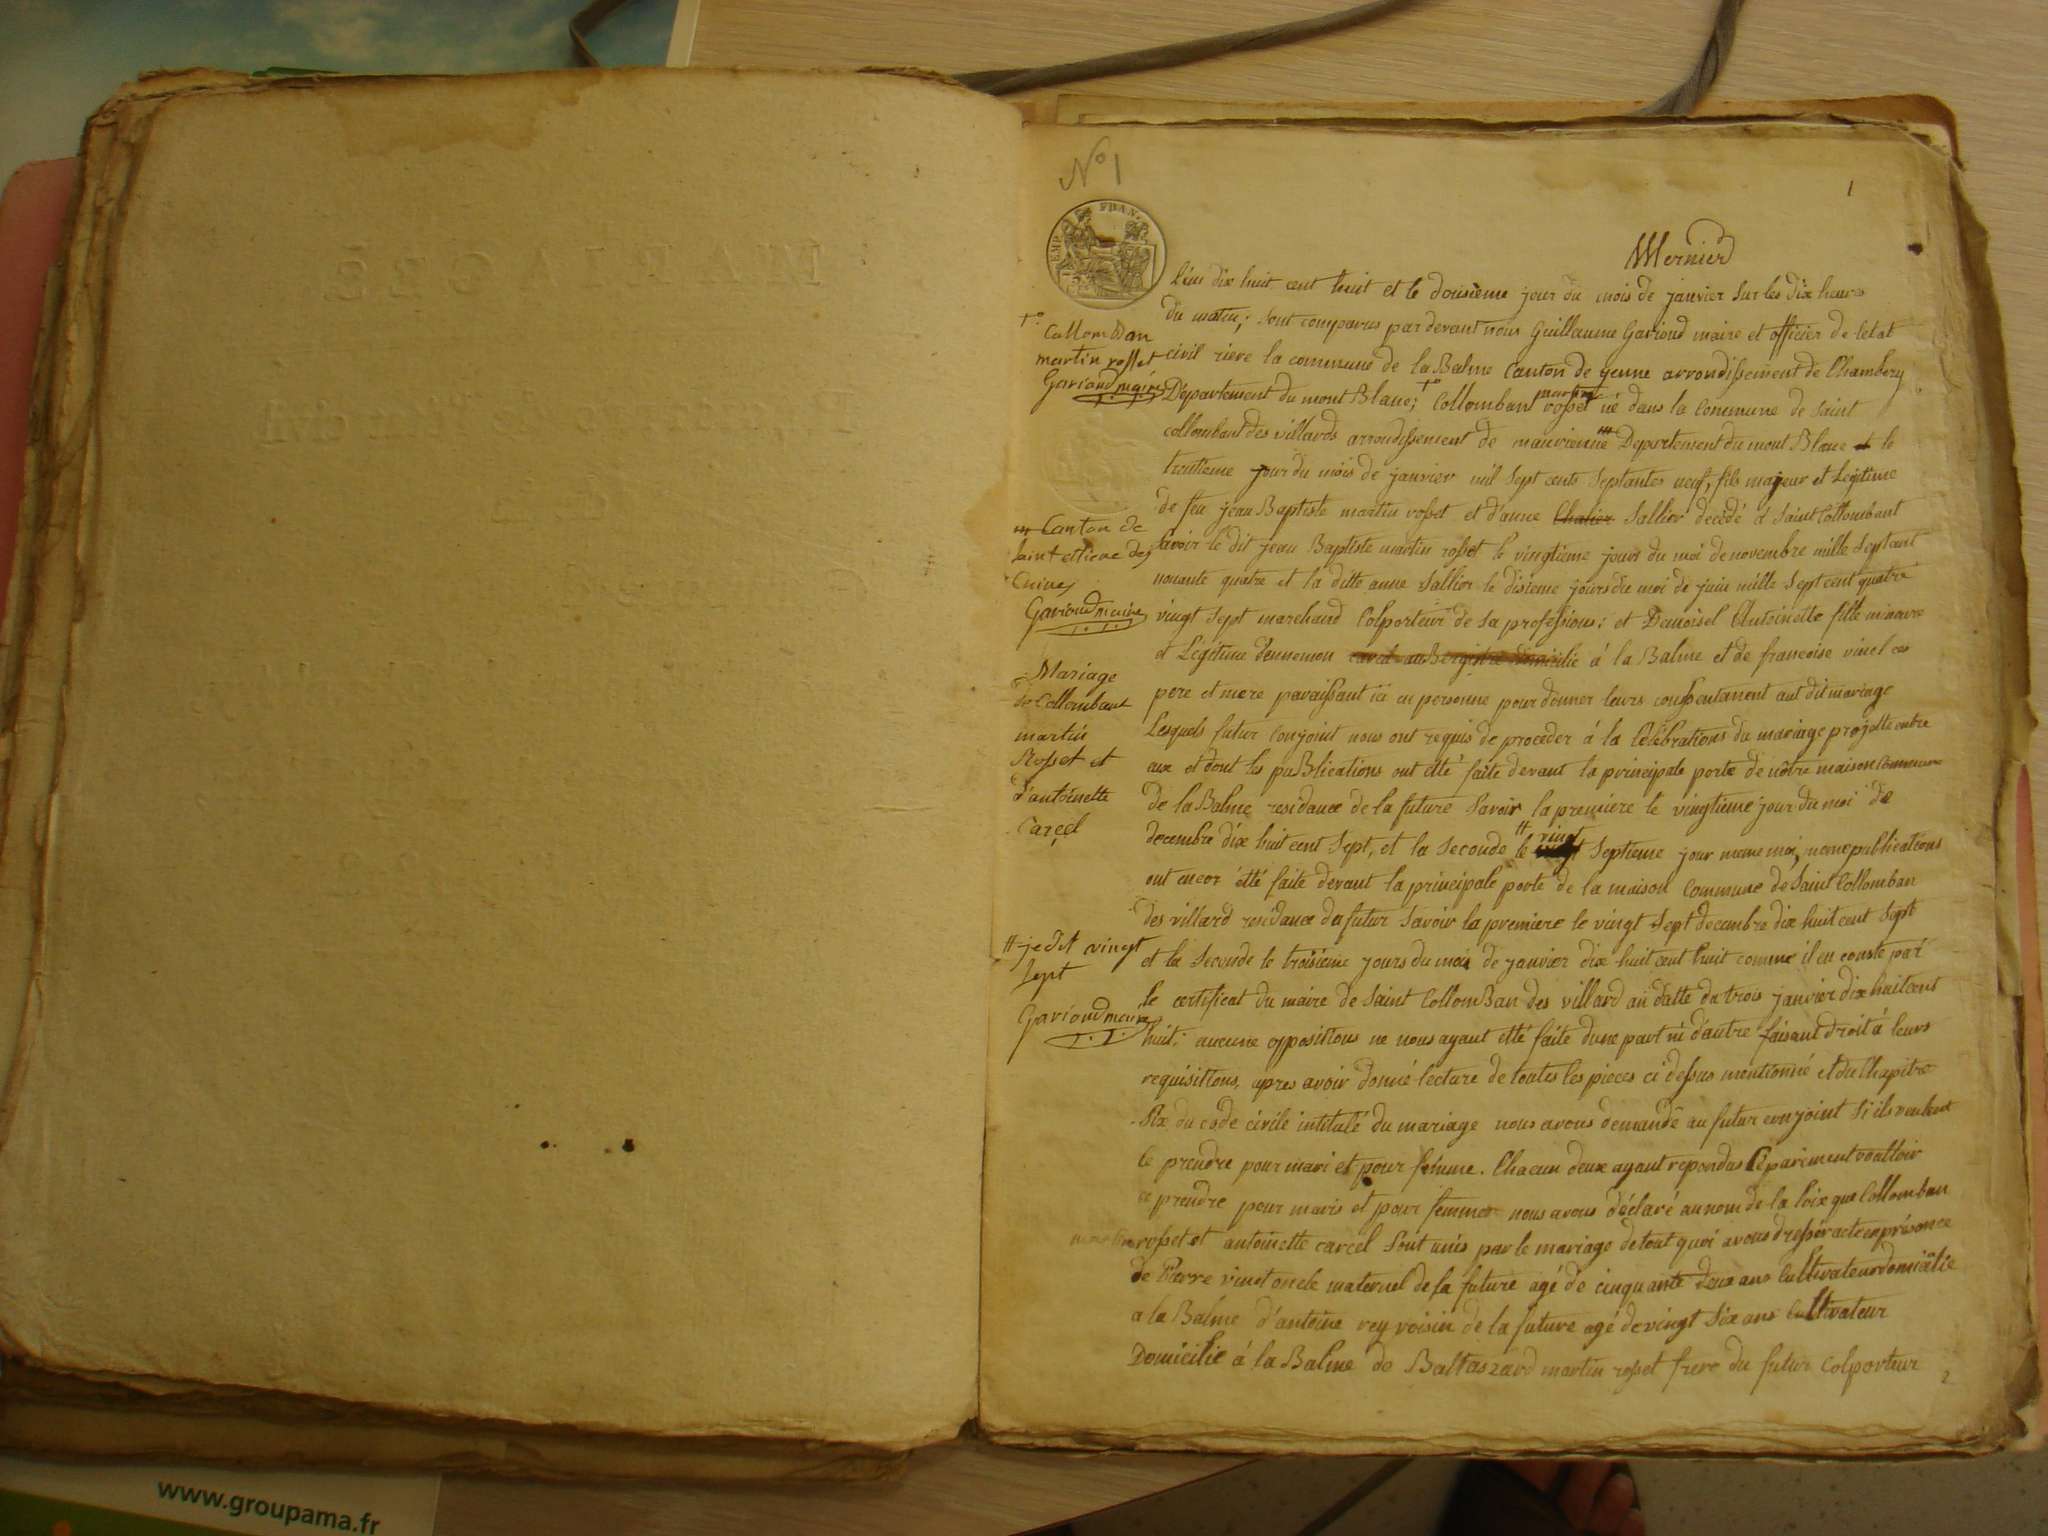 No 1
1
EMP. FRAN.
Mernier
L'an dix huit cent huit et le dousième jour du mois de janvier sur les dix heures
du matin; sont comparus par devant nous Guillaume Gavioud maire et officier de letat
civil riere la commune de la Balme Canton de yenne arrondissement de Chambery
Département du mont Blanc; Collomban martin rosset né dans la Commune de Saint
collombant des villards arrondissement de maurienne Departement du mont Blanc et le
trentieme jour du mois de janvier mil sept cents septantes neuf, fils majeur et Legitime
de feu jean Baptiste martin rosset et d'anne Chalier Sallier decedé a Saint Collombant
savoir le dit jean Baptiste martin rosset le vingtieme jours du moi de novembre mille septcant
nonante quatre et la ditte anne Sallier le disieme jours du moi de juin mille sept cent quatre
vingt sept marchand Colporteur de sa professions; et Demoisel Antoinette fille mineure
et Legitime dennemon carcel auBergiste domicilié á la Balme et de francoise vinel ces
pere et mere paraissant ici en personne pour donner leurs conssentament aut dit mariage
Lesquels futur Conjoint nous ont requis de proceder á la Célébrations du mariage projetté entre
eux et dont les puBlications ont etté faite devant la principale porte de nôtre maison Commune
de la Balme residance de la future Savoir la premiere le vingtieme jour du moi de
decembre dix huit cent sept, et la seconde le vingt septieme jour meme moi, meme publications
ont encor etté faite devant la principale porte de la maison Commune de Saint Collomban
des villard residance du futur savoir la premiere le vingt sept decembre dix huit cent sept
et la seconde le troisieme jours du moi de janvier dix huit cent huit comme il en conste par
le certificat du maire de Saint ColloмBan des villard au datte du trois janvier dix huit cent
huit; aucune oppositions ne nous ayant etté faite dune part ni d'autre faisant droit á leurs
requisitions, apres avoir donné lecture de toutes les pieces ci dessus mentionné et du Chapitre
Six du code civile intitulé du mariage nous avons demandé au futur conjoint si ils veulent
le prendre pour mari et pour femme. Chacun deux ayant repondus séparément voulloir
ce prendre pour maris et pour femmes nous avons déclaré au nom de la Loix que Collomban
martin rosset et antoinette carcel Sont unis par le mariage de tout quoi avons dresser acte en présence
de Pierre vinel oncle maternel de la future agé de cinquante deux ans Cultivateur domicilié
a la Balme d'antoine rey voisin de la future agé de vingt six ans Cultivateur
Domicilié á la Balme de Baltaszard martin rosset frere du futur Colporteur
2
Collomban
martin rosset
Gavioud maire
m Canton de
saint etiene des
Cuines
Gavioud maire
Mariage
de Collombant
martin
Rosset et
d'antoinette
Carcel
# je dit vingt
sept
Gavioud maire
www.groupama.fr